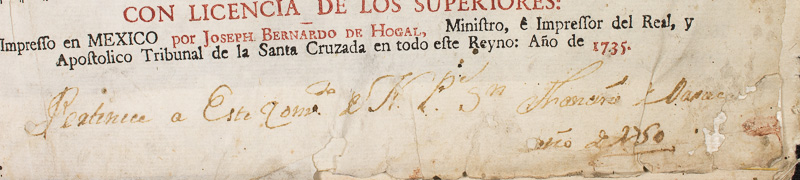 CON LICENCIA DE LOS SUPERIORES:
Impresso en MEXICO por JOSEPH BERNARDO DE HOGAL, Ministro, è Impressor del Real, y
Apostolico Tribunal de la Santa Cruzada en todo este Reyno: Año de 1735.
Pertenece a Este Com.to de N. P.e Sn
año de